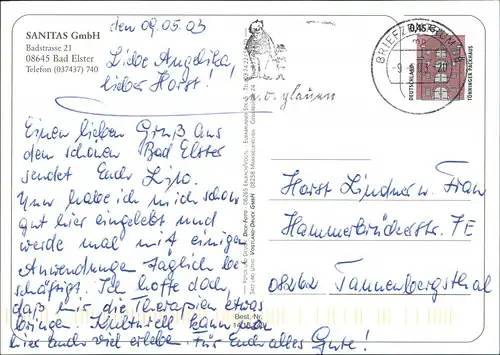 SANITAS GmbH
Badstrasse 21
08645 Bad Elster
Telefon (037437) 740
den 09.05.03
Liebe Angelika,
lieber Horst!
Einen lieben Gruß aus
dem schönen Bad Elster
sendet Euch
Nun habe ich mich schon
gut hier eingelebt und
werde mal mit einigen
Anwendungen täglich be-
schäftigt. Ich hoffe doch,
daß mir die Therapien etwas
bringen. Kulturell kann man
hier auch viel erleben. Für Euch alles Gute!
Best.-Nr.
BRIEFZENTRUM
0,45
DEUTSCHLAND
TÖNNINGER PACKHAUS
v. Plauen
Horst Lindner u. Frau
Hammerbrückerstr. 7E
08262 Tannenbergsthal